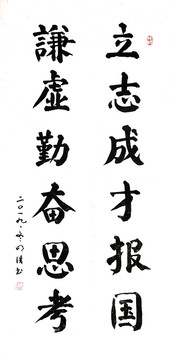 立志成才报国
謙虚勤奋思考
二〇一九